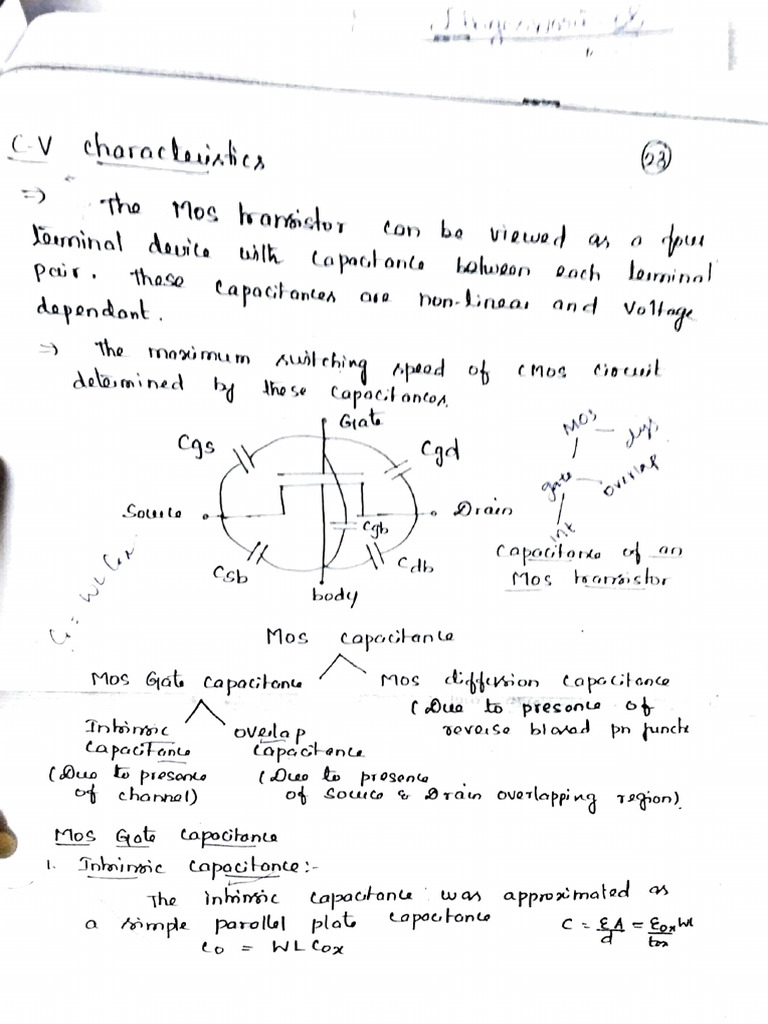 C-V characteristics
23
=> The Mos transistor can be viewed as a four
terminal device with capacitance between each terminal
pair. These capacitances are non-linear and voltage
dependant.
=> The maximum switching speed of CMOS circuit
determined by these capacitances.
Gate
Cgs
Cgd
Source
Drain
Cgb
Csb
Cdb
body
MOS
gate
overlap
int
Capacitance of an
Mos transistor
C = WL Cox
Mos capacitance
Mos Gate capacitance
Mos diffusion capacitance
(Due to presence of
reverse biased pn juncti
Intrinsic
capacitance
(Due to presence
of channel)
overlap
capacitance
(Due to presence
of Source & Drain overlapping region).
Mos Gate capacitance
1. Intrinsic capacitance:-
The intrinsic capacitance was approximated as
a simple parallel plate capacitance
C = εA/d = εox WL/tox
C0 = WL Cox